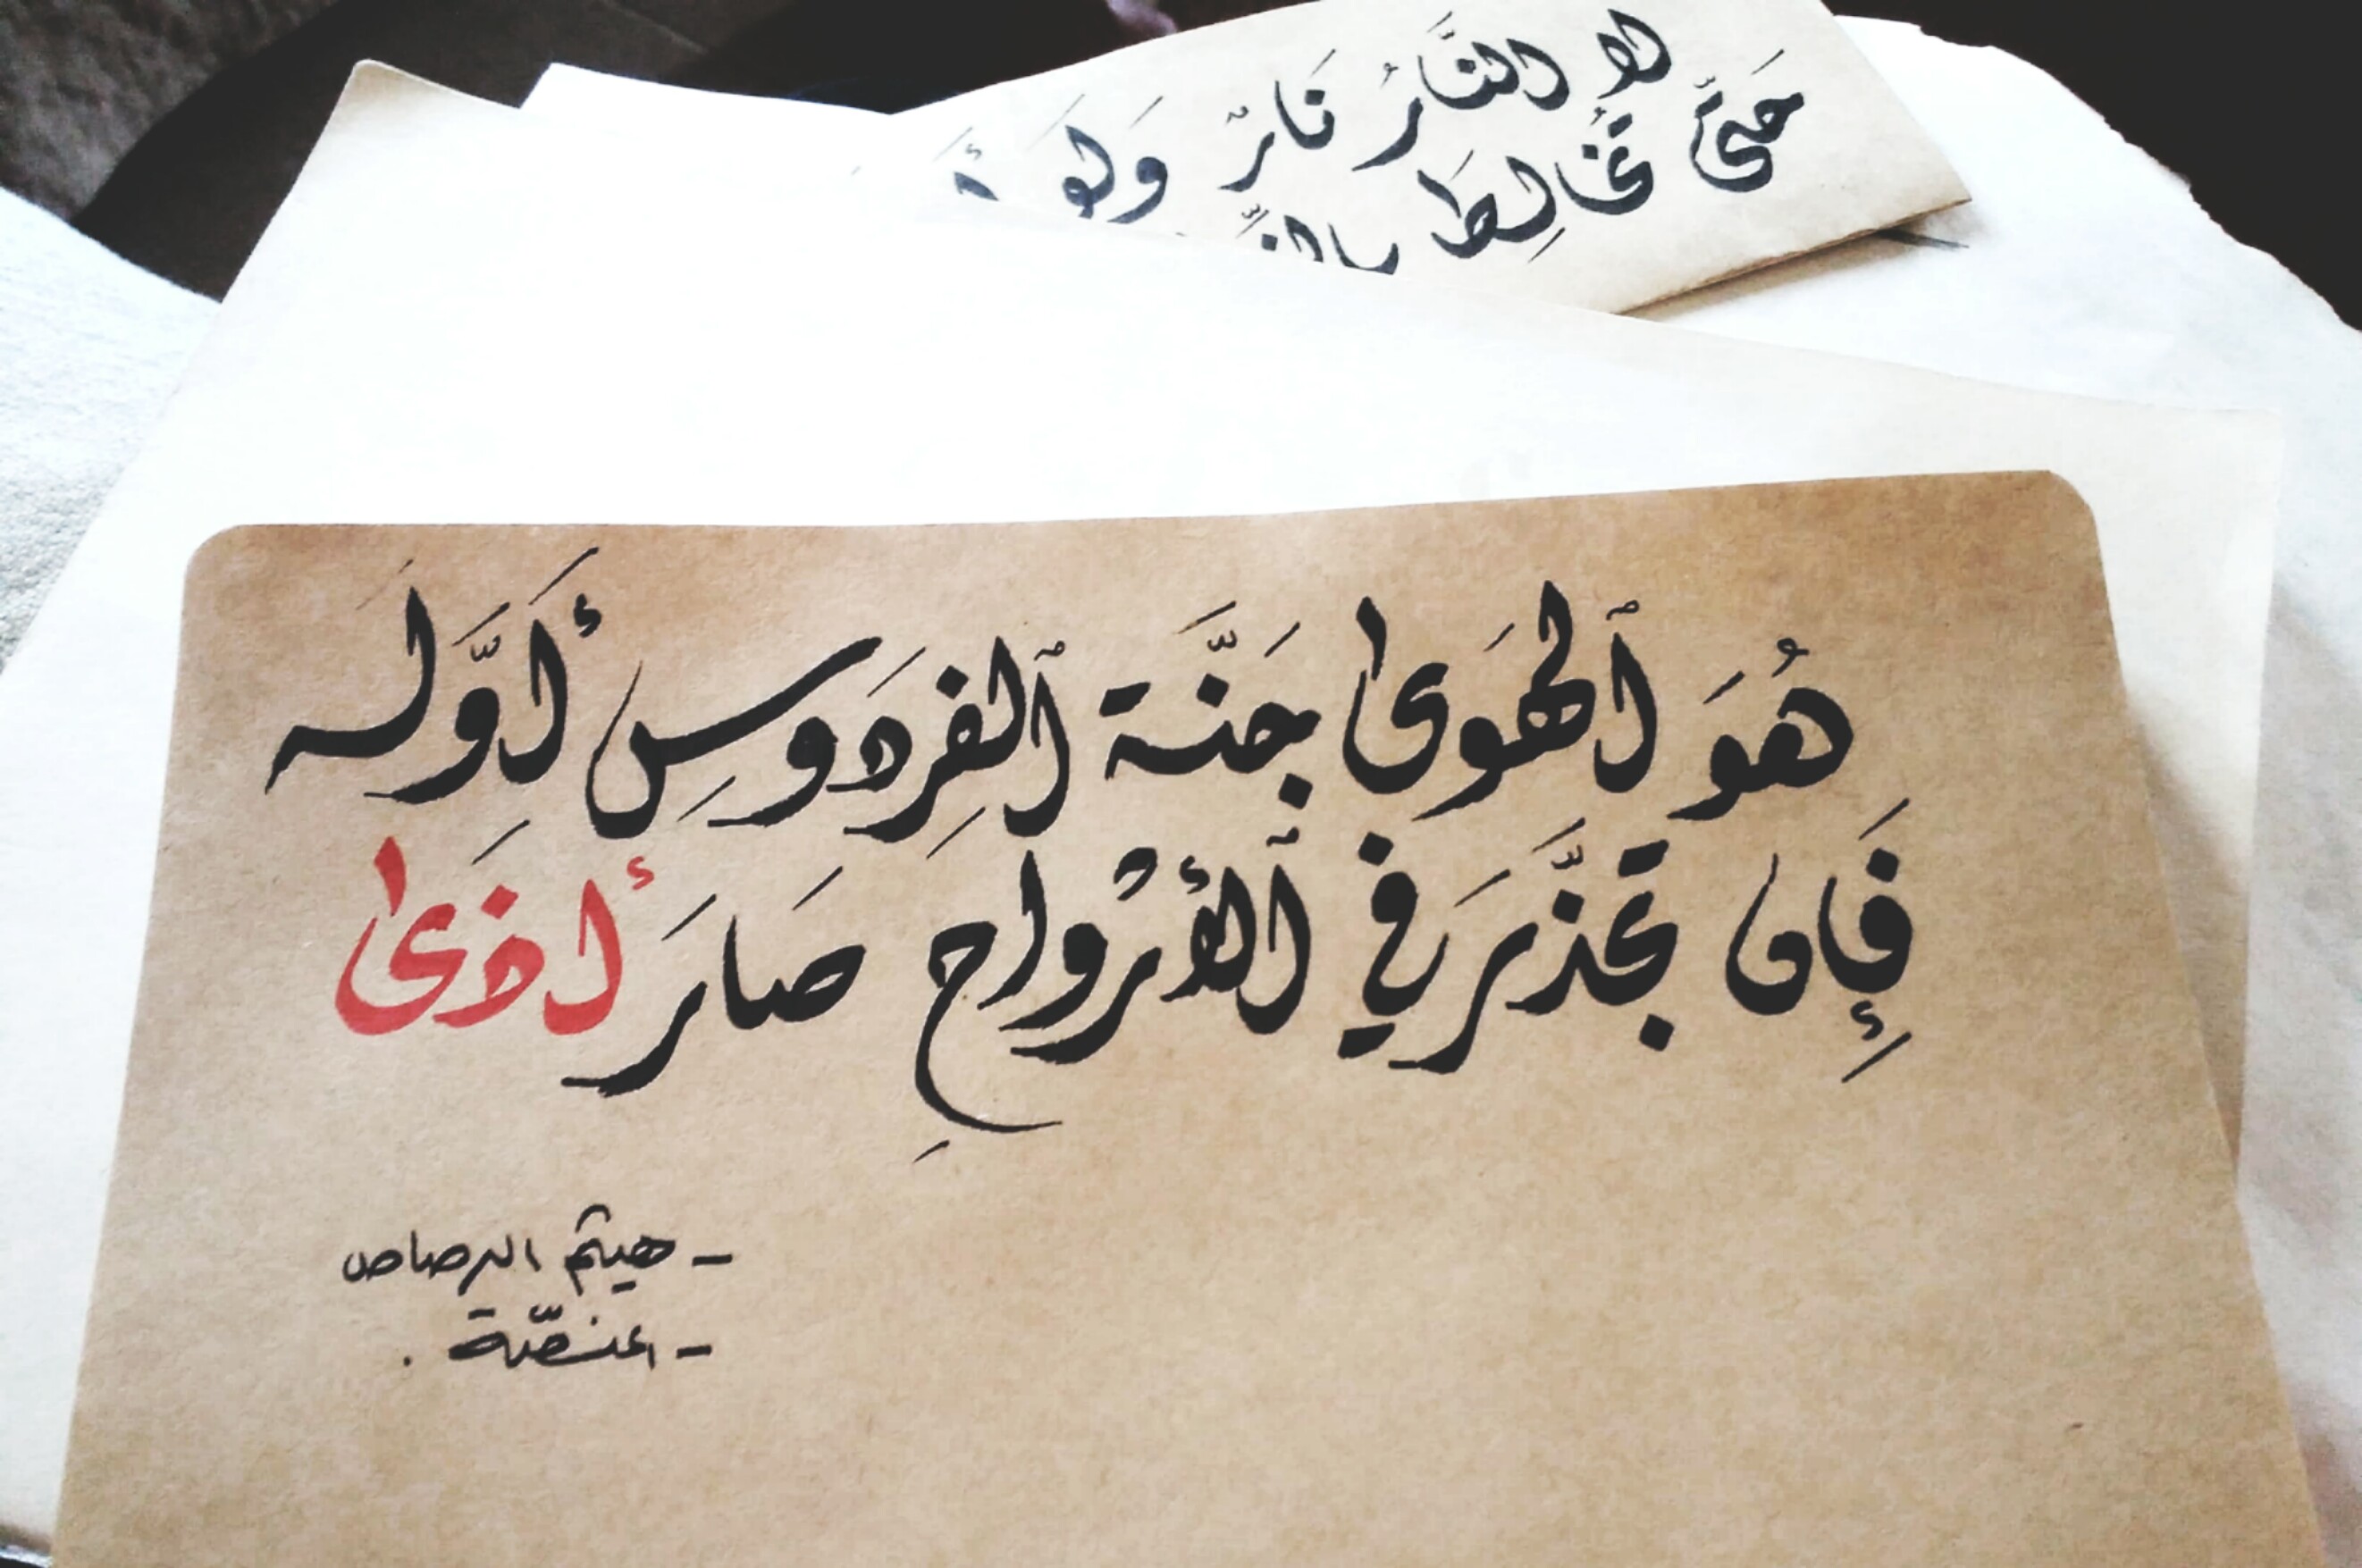 لا النَّارُ نَارٌ وَلَو
حَتَّى تُخَالِطَ
هُوَ ٱلهَوىٰ جَنَّة ٱلفِردَوسِ أَوَّلَه
فَإِن تجذَّرَ في ٱلأرْواحِ صَارَ أذَىٰ
- هيثم الرصاص